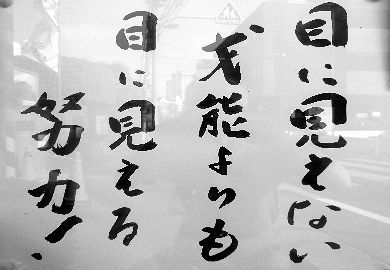 目に見えない
才能よりも
目に見える
努力!